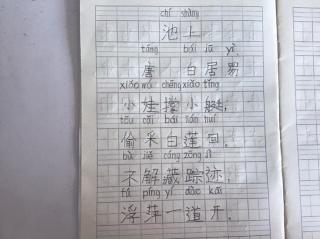 chí shàng
池上
táng bái jū yì
唐 白居易
xiǎo wá chēng xiǎo tǐng
小娃撑小艇，
tōu cǎi bái lián huí
偷采白莲回。
bù jiě cáng zōng jì
不解藏踪迹，
fú píng yí dào kāi
浮萍一道开。